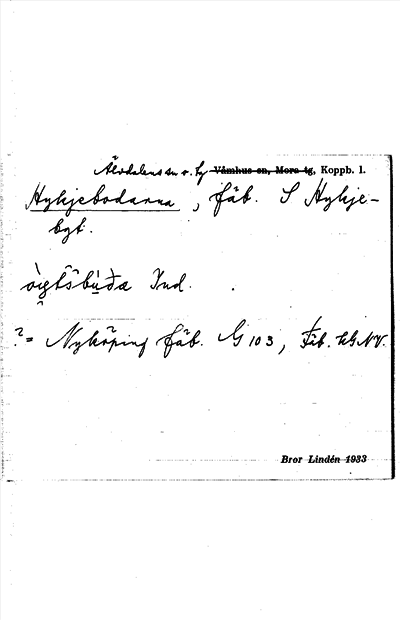 Älvdalens sn o. tg ~~Våmhus sn, Mora tg~~, Koppb. l.
Hykjebodarna, fäb. S Hykje-
bgt.
Ind.
?= Nyköping fäb. G 103, Fäb. NV.
~~Bror Lindén 1933~~